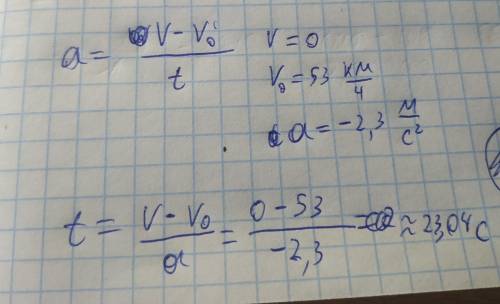 a = V - V₀ / t
V = 0
V₀ = 53 км/ч
a = -2,3 м/с²
t = V - V₀ / a = 0 - 53 / -2,3 ≈ 23,04 с